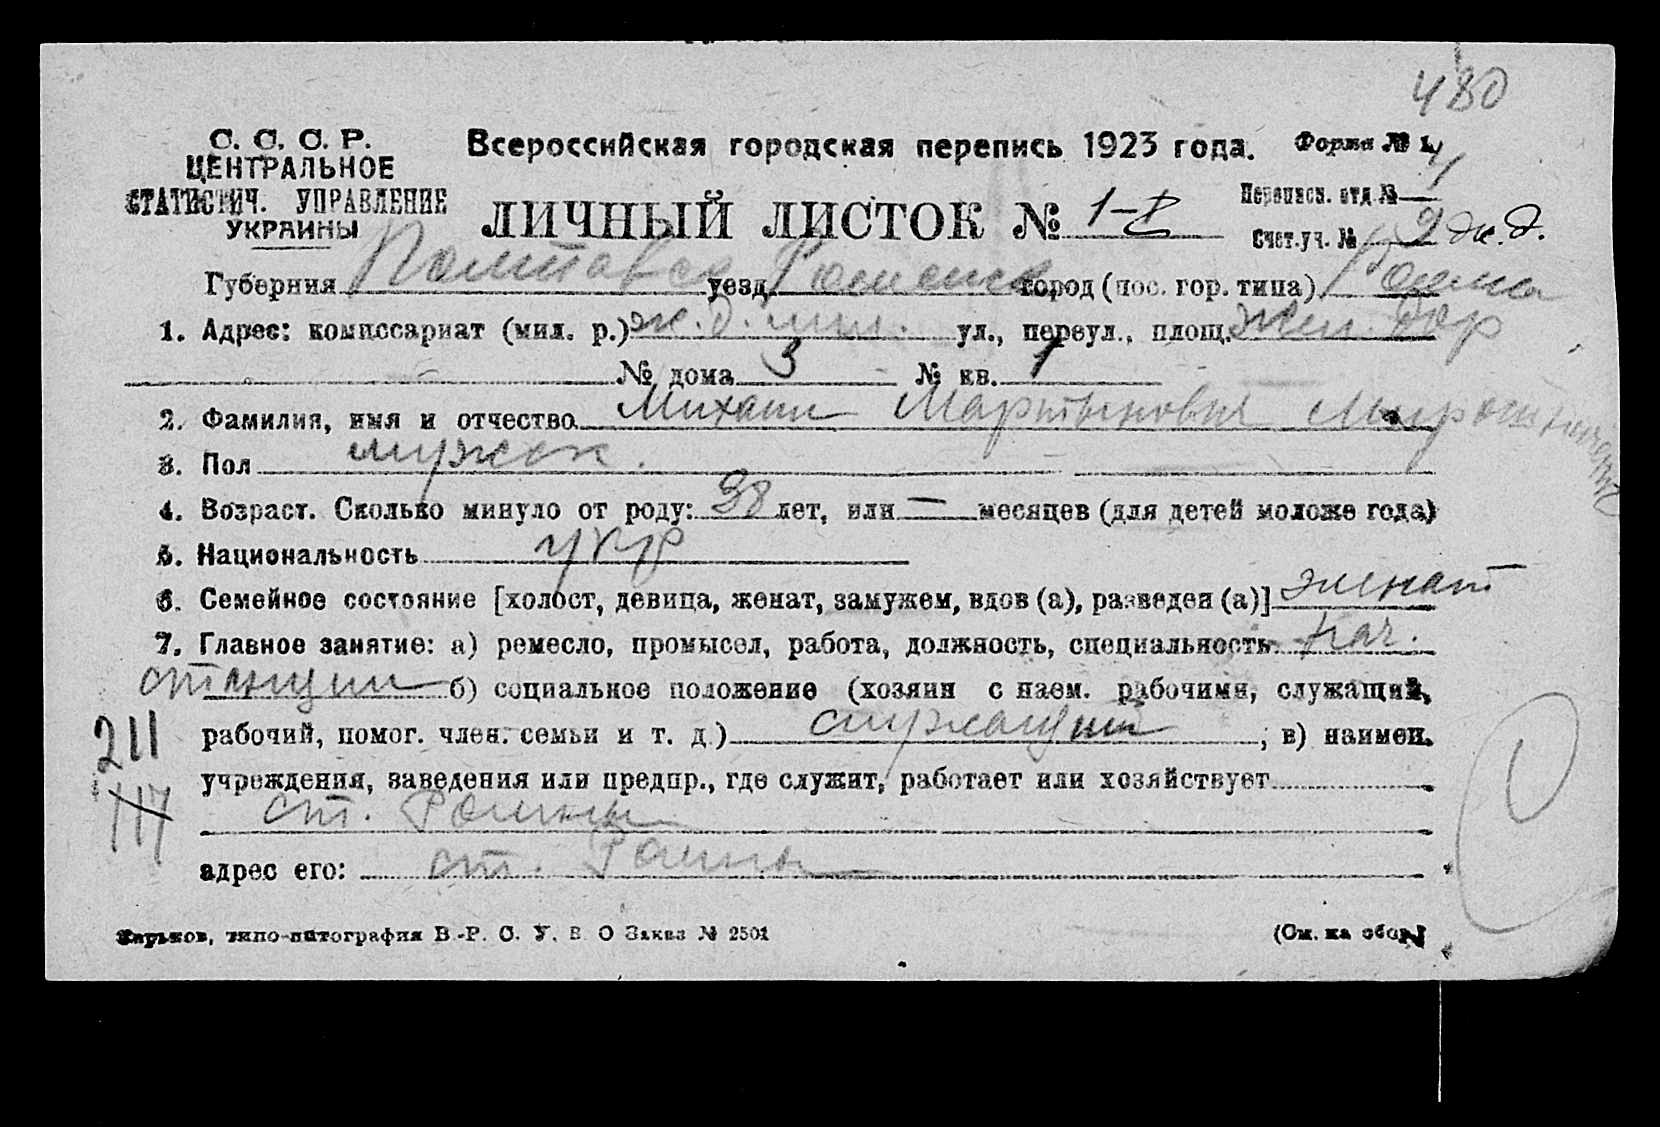 480
С. С. С. Р.
ЦЕНТРАЛЬНОЕ
СТАТИСТИЧ. УПРАВЛЕНИЕ
УКРАИНЫ
Всероссийская городская перепись 1923 года. Форма № 1
ЛИЧНЫЙ ЛИСТОК № 1-
Переписн. отд. № 1
Счет. уч. № 2 ж. д.
Губерния Полтавск уезд Роменск город (пос. гор. типа) Ромны
1. Адрес: комиссариат (мил. р.) ж. д. мил. ул., переул., площ. Жел. Дор
№ дома 3 № кв. 1
2. Фамилия, имя и отчество Михаил Мартынович Мирошниченко
3. Пол мужск.
4. Возраст. Сколько минуло от роду: 38 лет, или — месяцев (для детей моложе года)
5. Национальность укр
6. Семейное состояние [холост, девица, женат, замужем, вдов (а), разведен (а)] женат
7. Главное занятие: а) ремесло, промысел, работа, должность, специальность Нач.
станции б) социальное положение (хозяин с наем. рабочими, служащий,
211
рабочий, помог. член. семьи и т. д.) служащий ; в) наимен.
учреждения, заведения или предпр., где служит, работает или хозяйствует
117
ст. Ромны
адрес его: ст. Ромны
Харьков, типо-литография В.-Р. С. У. В. О Заказ № 2501 (См. на обор.)